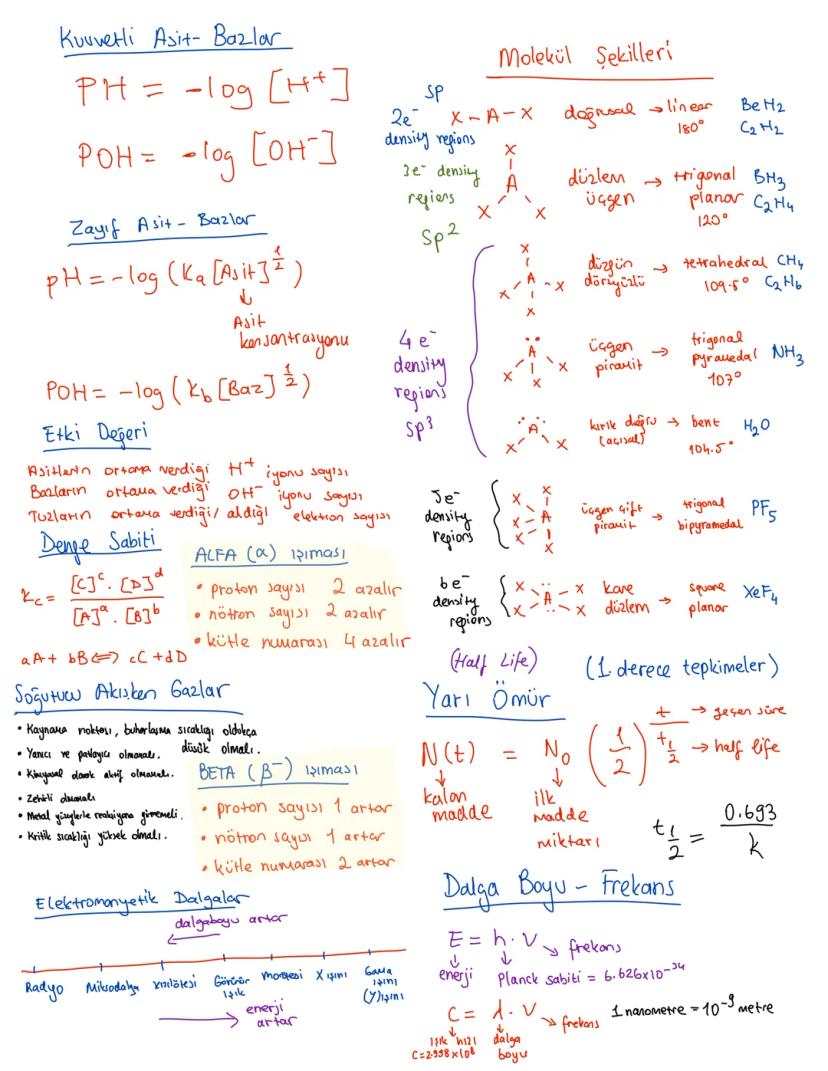 Kuvvetli Asit-Bazlar
PH = -log [H⁺]
POH = -log [OH⁻]
Zayıf Asit-Bazlar
pH = -log (Ka [Asit]^1/2)
↓
Asit
konsantrasyonu
POH = -log (Kb [Baz]^1/2)
Etki Değeri
Asitlerin ortama verdiği H⁺ iyonu sayısı
Bazların ortama verdiği OH⁻ iyonu sayısı
Tuzların ortama verdiği/aldığı elektron sayısı
Denge Sabiti
Kc = [C]^c . [D]^d / [A]^a . [B]^b
aA + bB ⇔ cC + dD
ALFA (α) ışıması
• proton sayısı 2 azalır
• nötron sayısı 2 azalır
• kütle numarası 4 azalır
Soğutucu Akışkan Gazlar
• Kaynama noktası, buharlaşma sıcaklığı oldukça
düşük olmalı.
• Yanıcı ve patlayıcı olmamalı.
• Kimyasal olarak aktif olmamalı.
• Zehirli olmamalı
• Metal yüzeylerle reaksiyona girmemeli.
• Kritik sıcaklığı yüksek olmalı.
BETA (β⁻) ışıması
• proton sayısı 1 artar
• nötron sayısı 1 artar
• kütle numarası 2 artar
Elektromanyetik Dalgalar
dalgaboyu artar
←
Radyo Mikrodalga Kızılötesi Görünür ışık morötesi X ışını Gama ışını (γ) ışını
→ enerji
artar
Molekül Şekilleri
sp
2e⁻
density regions
X - A - X
doğrusal → linear
180°
BeH₂
C₂H₂
3e⁻ density
regions
sp²
X
A
X X
düzlem
üçgen
→ trigonal
planar
120°
BH₃
C₂H₄
4e⁻
density
regions
sp³
X
X A X
X
düzgün
dörtyüzlü
→ tetrahedral
109.5°
CH₄
C₂H₆
A
X X X
üçgen
piramit
→ trigonal
pyramedal
107°
NH₃
A
X X
kırık doğru
(açısal)
→ bent
104.5°
H₂O
5e⁻
density
regions
X X
X - A
X X
üçgen çift
piramit
→ trigonal
bipyramedal
PF₅
6e⁻
density
regions
X A X
X X
kare
düzlem
→ square
planar
XeF₄
(Half Life)
(1. derece tepkimeler)
Yarı Ömür
N(t) = N₀ (1/2)^t/t1/2
t → geçen süre
t1/2 → half life
↓
kalan
madde
↓
ilk
madde
miktarı
t1/2 = 0.693 / k
Dalga Boyu - Frekans
E = h . V
frekans
enerji
Planck sabiti = 6.626x10⁻³⁴
C = λ . V
frekans
ışık hızı
C=2.998x10⁸
dalga
boyu
1 nanometre = 10⁻⁹ metre